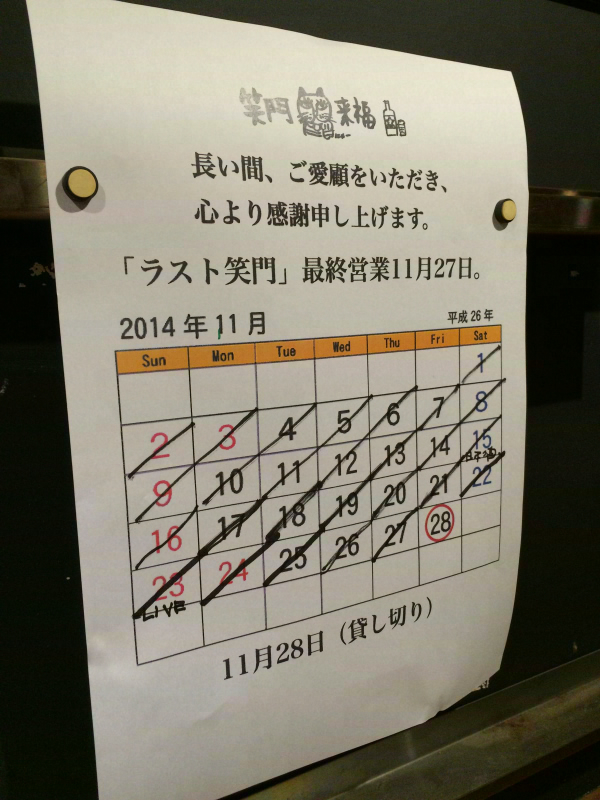 笑門 来福
長い間、ご愛顧をいただき、
心より感謝申し上げます。
「ラスト笑門」最終営業11月27日。
2014年11月 平成26年
Sun Mon Tue Wed Thu Fri Sat
1
2 3 4 5 6 7 8
9 10 11 12 13 14 15
16 17 18 19 20 21 22
23 24 25 26 27 28
LIVE
11月28日（貸し切り）